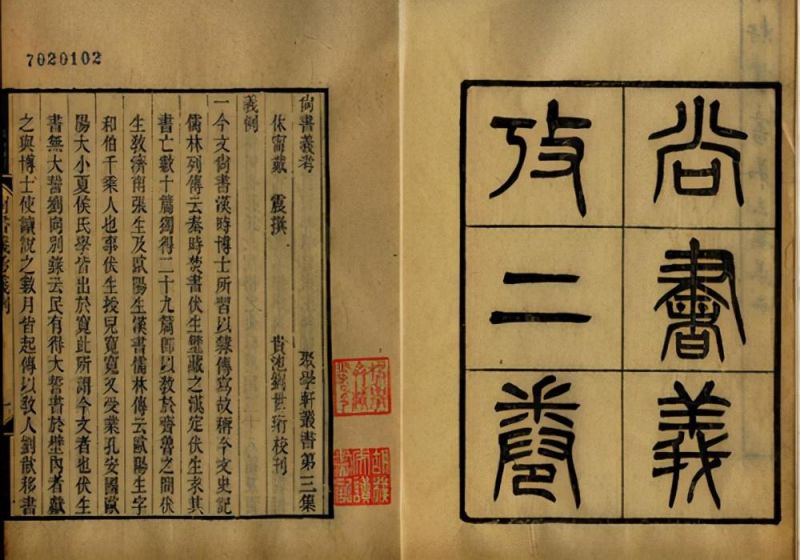 尚書義
攷二卷
7020102
尚書義考 聚學軒叢書第三集
休甯戴 震撰 貴池劉世珩校刊
義例
一今文尚書漢時博士所習以隸傳寫故稱今文史記
儒林列傳云秦時焚書伏生壁藏之漢定伏生求其
書亡數十篇獨得二十九篇卽以敎於齊魯之間伏
生敎濟南張生及歐陽生漢書儒林傳云歐陽生字
和伯千乘人也事伏生授兒寬寬又受業孔安國歐
陽大小夏侯氏學皆出於寬此所謂今文者也伏生
書無大誓劉向別錄云民有得大誓書於壁內者獻
之與博士使讀說之數月皆起傳以敎人劉歆移書